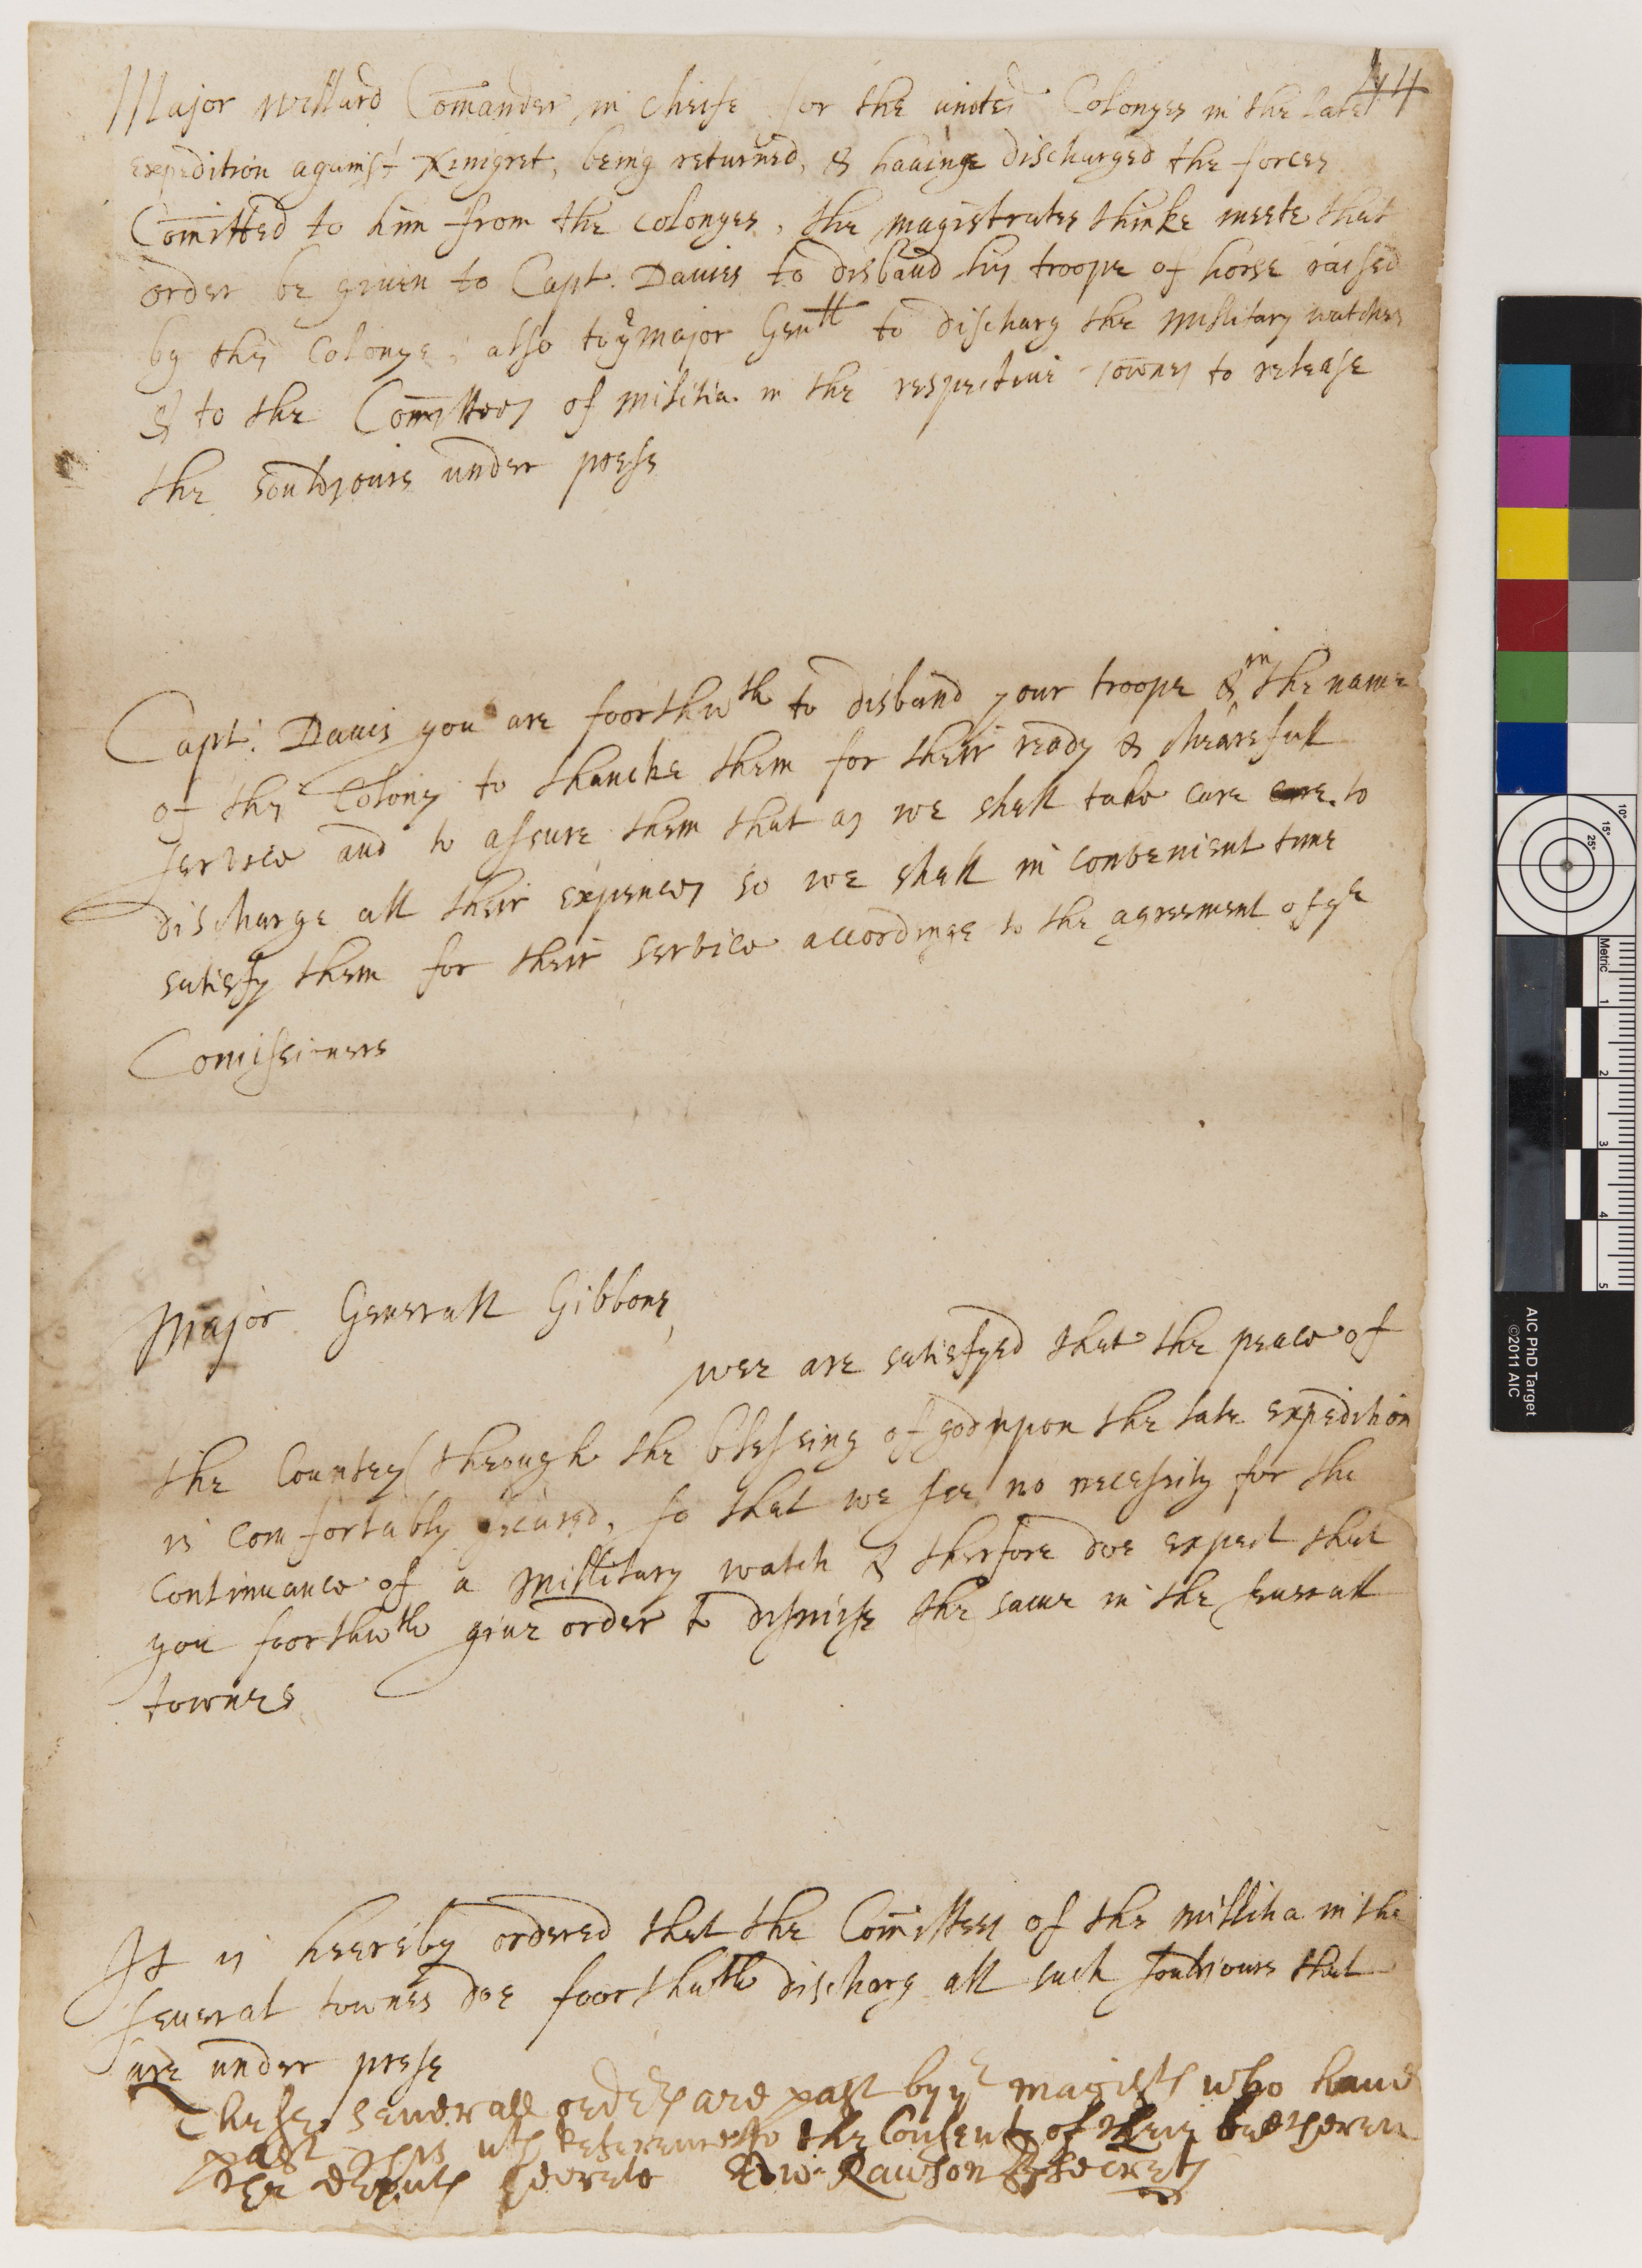 44
Major Willard Comander in cheife for the united Colonyes in the late
expedition against Ninigret, being returned, & haueinge discharged the forces
Comitted to him from the colonyes, the magistrates thinke meete that
order be giuen to Capt. Dauis to disband his troope of horse raised
by this Colonye, also to ye major Genll to discharg the millitary watches
& to the Comittees of militia in the respectiue townes to release
the souldjours under prese
Capt. Dauis you are foorthwth to disband your troope & in the name
of this Colony to thancke them for their ready & chearefull
service and to assure them that as we shall take care to
discharge all their expences so we shall in convenient time
satisfy them for their service accordinge to the agreement of ye
Comissioners
Major Generall Gibbons,
wee are satisfyed that the peace of
the Countey through the blessing of god uppon the late expedition
is comfortably secured, so that we see no necessity for the
continuance of a millitary watch & therfore doe expect that
you foorthwth giue order to dismise the same in the seuerall
townes
It is heereby ordered that the Comittees of the millitia in the
seueral townes doe foorthwth discharg all such souldiours that
are under prese
These seuerall orders are past by ye magists who haue
past this wth Reference to the Consent of their bretheren
the deputs hereto Edw. Rawson Secrety
AIC PhD Target
©2011 AIC
Metric
1
2
3
4
5
10°
15°
25°